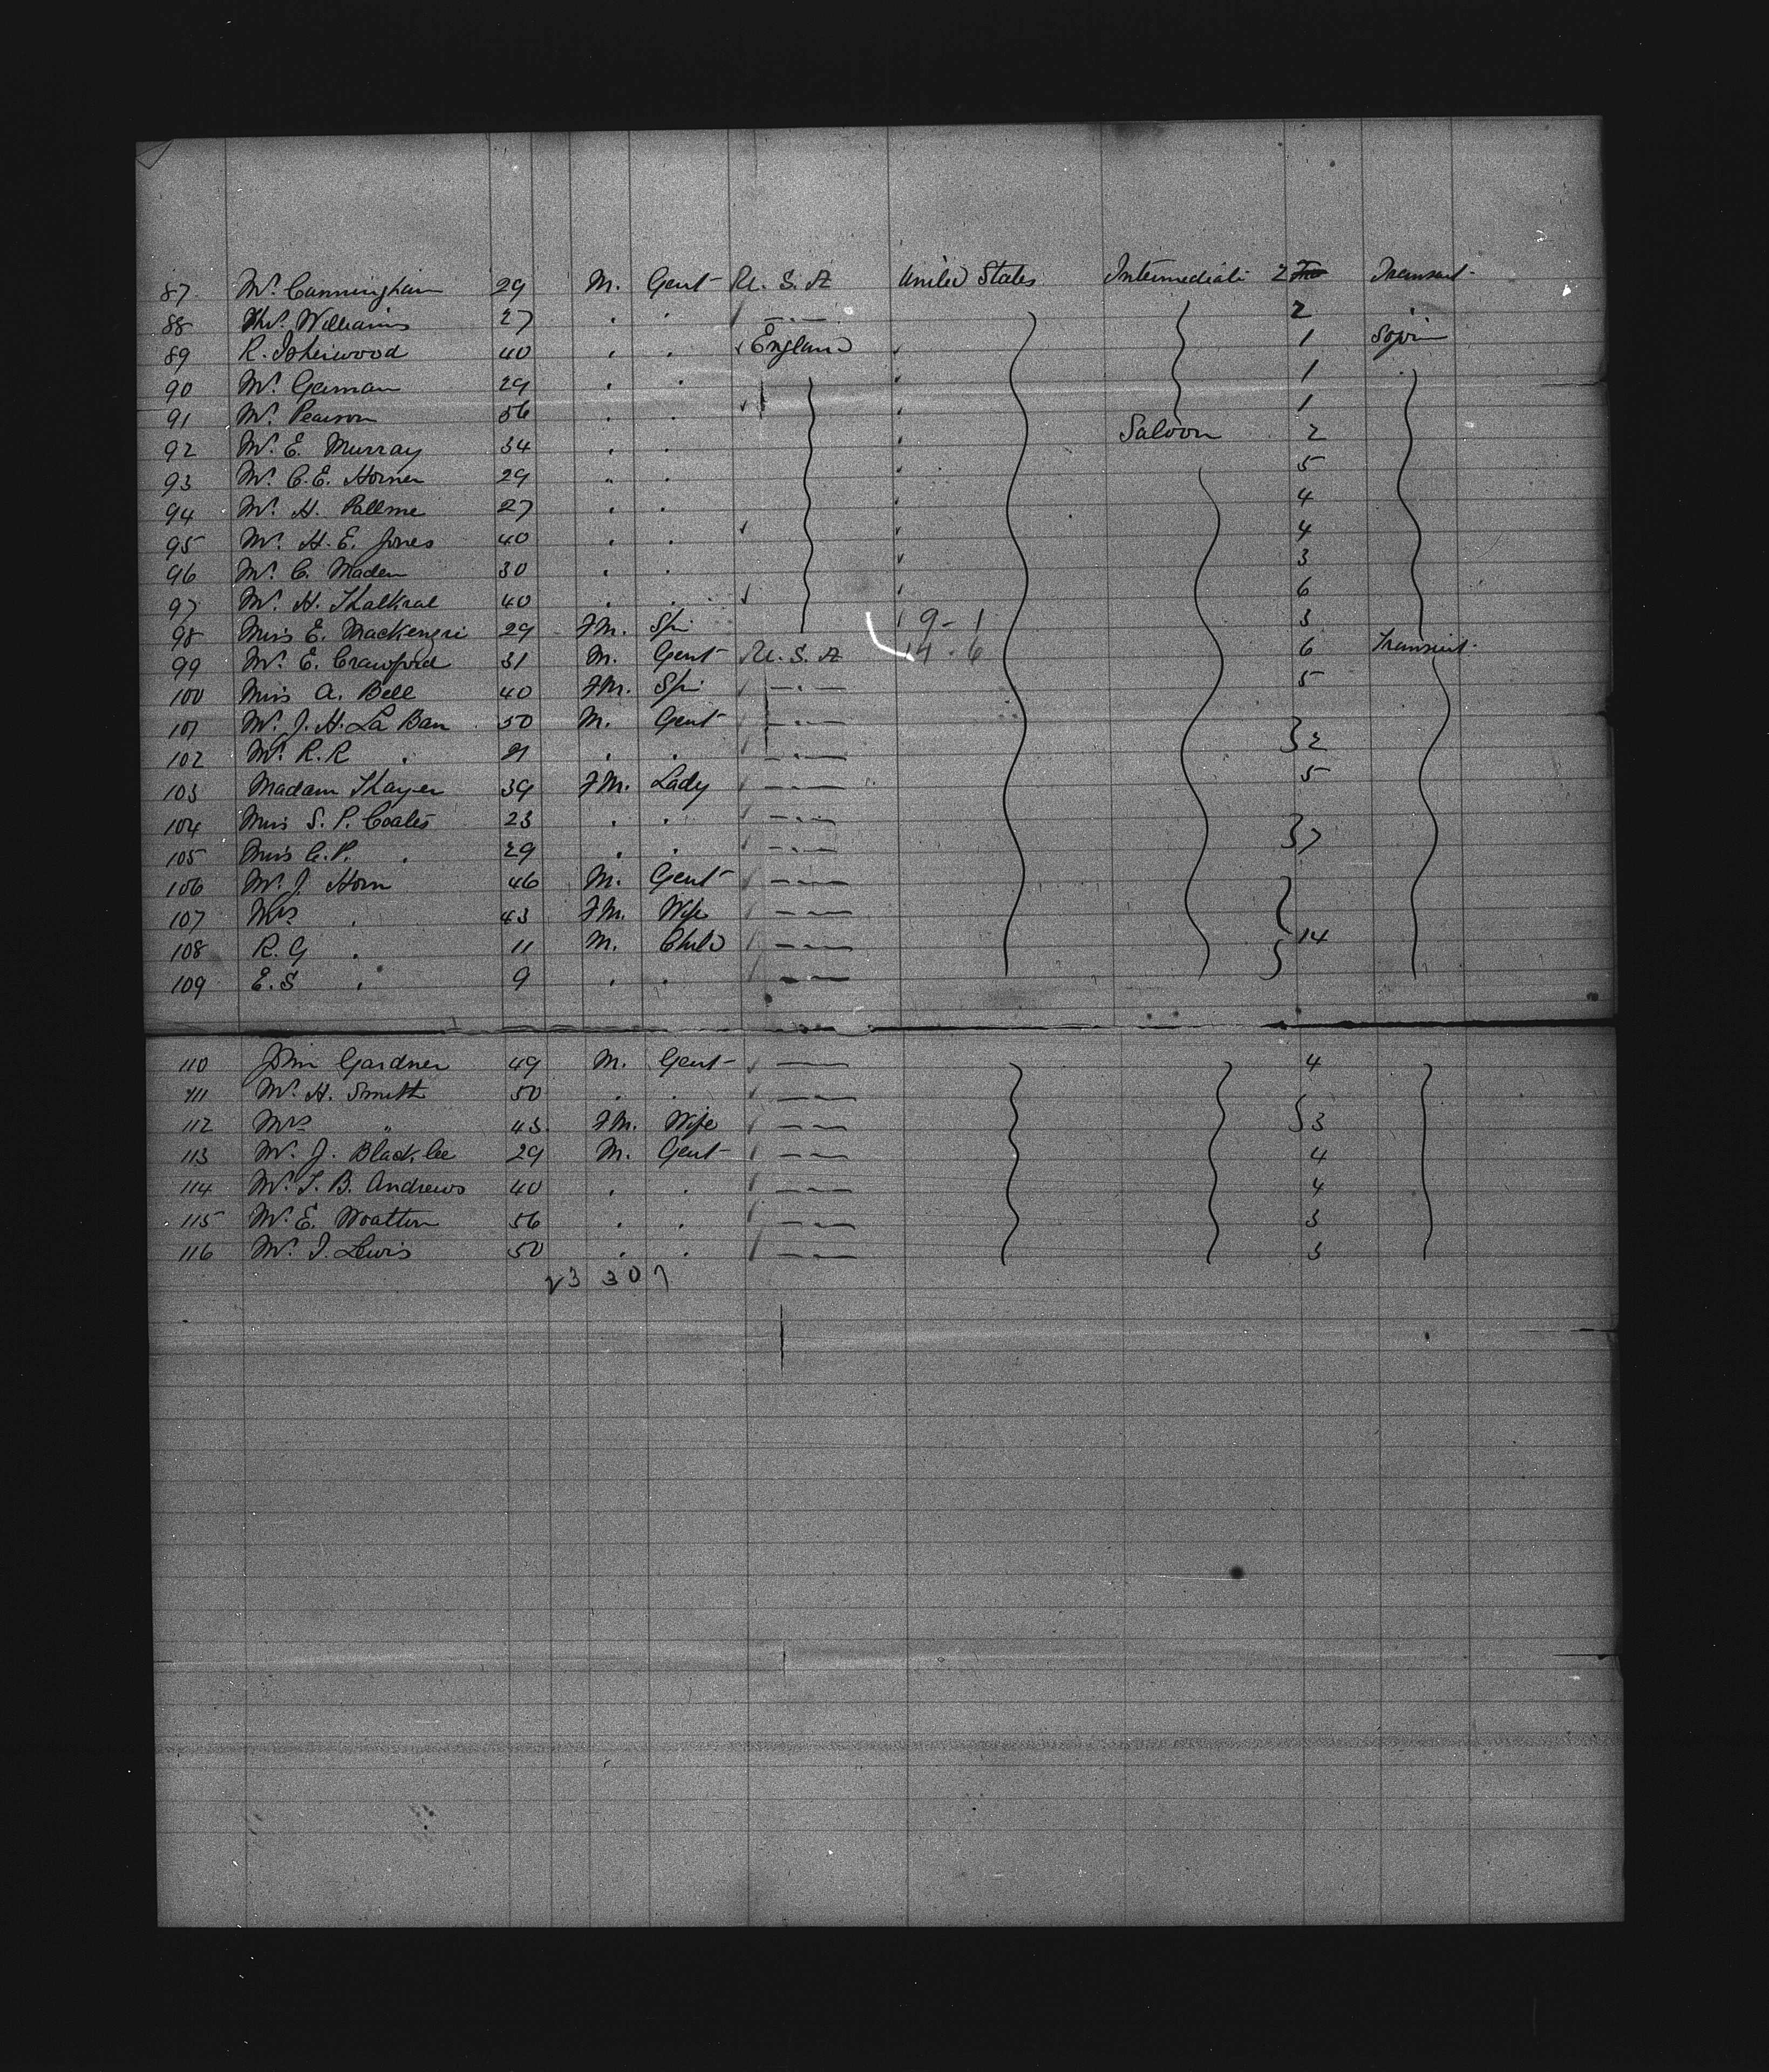 87 Mr. Cunningham 29 M. Gent U. S. A United States Intermediate 2 Transient
88 Thos. Williams 27 " " — " — 2 "
89 R. Isherwood 40 " " England 1 Sojrn
90 Mr. Garman 29 " " 1 "
91 Mr. Pearson 56 " " 1
92 Mr. E. Murray 34 " " Saloon 2
93 Mr. C. E. Horner 29 " " 5
94 Mr. H. Pallme 27 " " 4
95 Mr. H. E. Jones 40 " " 4
96 Mr. C. Maden 30 " " 3
97 Mr. H. Thalkral 40 " " 6
98 Miss E. Mackenzie 29 FM. Spi 9 - 1 3
99 Mr. E. Crawford 31 M. Gent U. S. A 14 - 6 6 Transient
100 Miss A. Bell 40 FM. Spi — " — 5
101 Mr. J. H. La Bau 50 M. Gent — " — } 2
102 Mr. R. R " 21 " " — " —
103 Madam Thayer 39 FM. Lady — " — 5
104 Miss S. P. Coates 23 " " — " — } 7
105 Miss C. P. " 29 " " — " —
106 Mr. J. Horn 46 M. Gent — " —
107 Mrs " 43 FM. Wife — " —
108 R. G " 11 M. Child — " — } 14
109 E. S " 9 " " — " —
110 John Gardner 49 M. Gent — — 4
111 Mr. H. Smith 50 " " — —
112 Mrs " 43 FM. Wife — — } 3
113 Mr. J. Blacklee 29 M. Gent — — 4
114 Mr. T. B. Andrews 40 " " — — 4
115 Mr. E. Woatton 56 " " — — 3
116 Mr. J. Lewis 50 " " — — 3
23 30 7